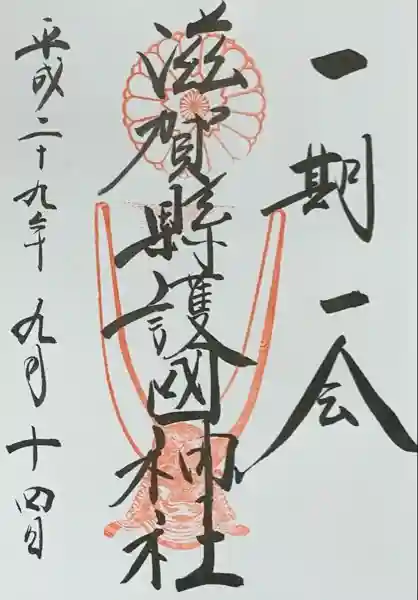 一期一会
滋賀縣護國神社
平成二十九年九月十四日